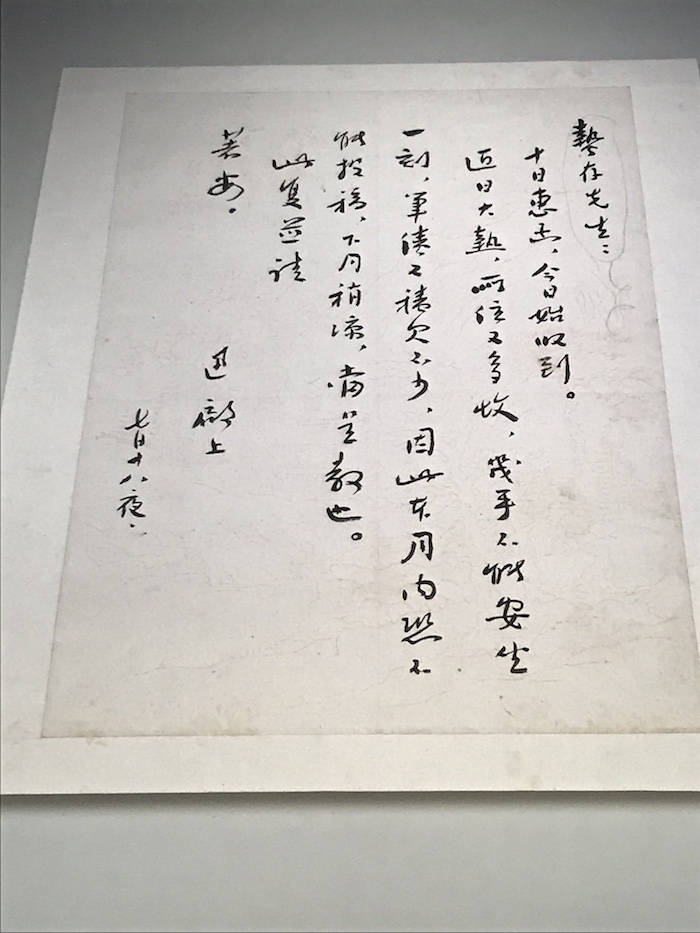 蟄存先生：
十日惠函，今日始收到。
近日大熱，所住又多蚊，幾乎不能安坐
一刻，筆債又積欠不少，因此本月内恐不
能投稿，下月稍涼，當呈教也。
此复並請
著安。
迅啟上
七月十八夜。